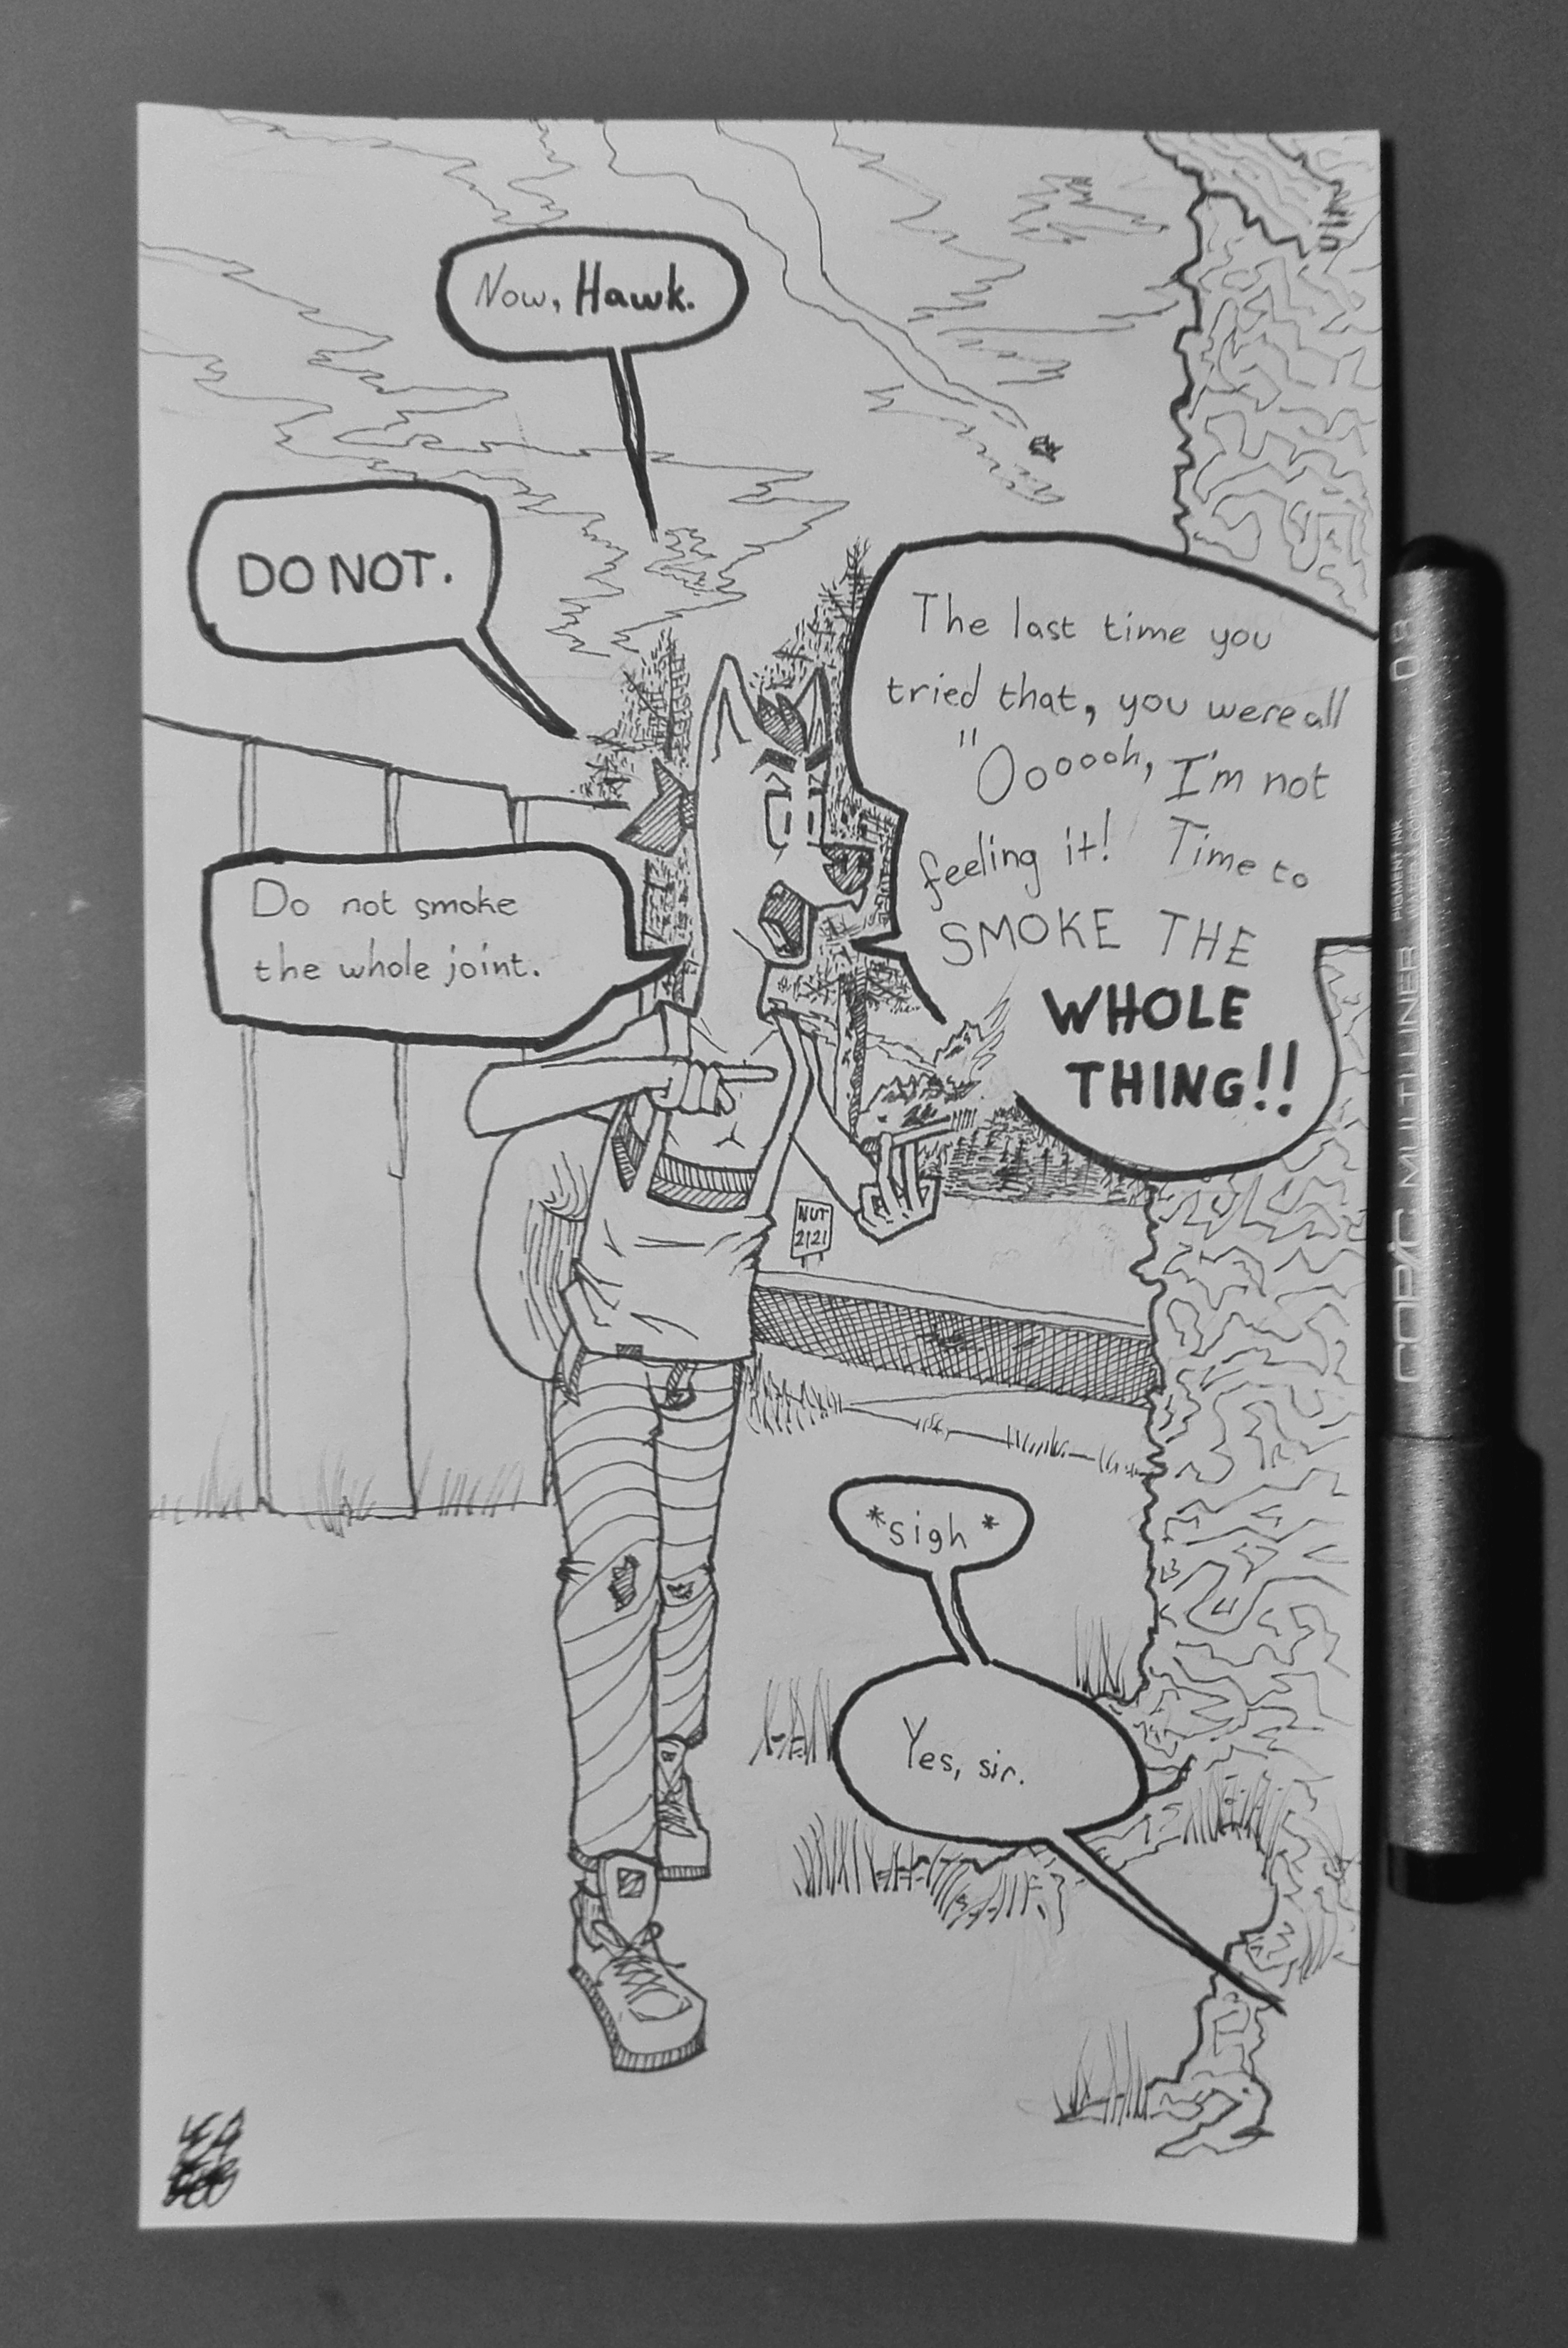 Now, Hawk.
DO NOT.
Do not smoke
the whole joint.
The last time you
tried that, you were all
"Oooooh, I'm not
feeling it! Time to
SMOKE THE
WHOLE
THING!!
NUT
2121
*sigh*
Yes, sir.
COPIC MULTILINER
PIGMENT INK
0.8